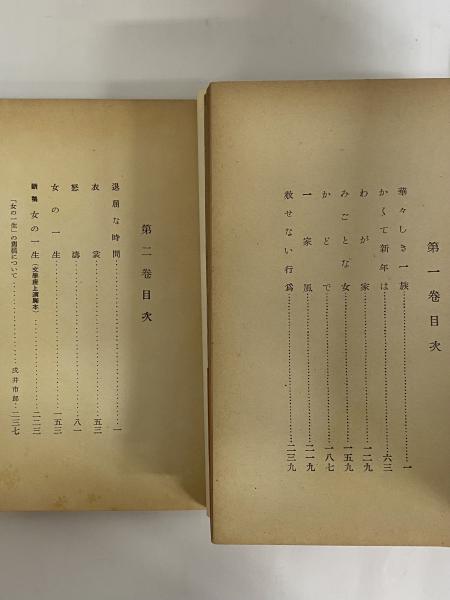 第一巻目次
華々しき一族……一
かくて新年は……六三
わが家……一二九
みごとな女……一五九
かどで……一八七
一家風……二一九
赦せない行為……二三九
第二巻目次
退屈な時間……一
衣裳……五三
怒濤……八一
女の一生……一五三
女の一生(文學座上演脚本)……二二三
「女の一生」の舊稿について……戌井市郎…二三七